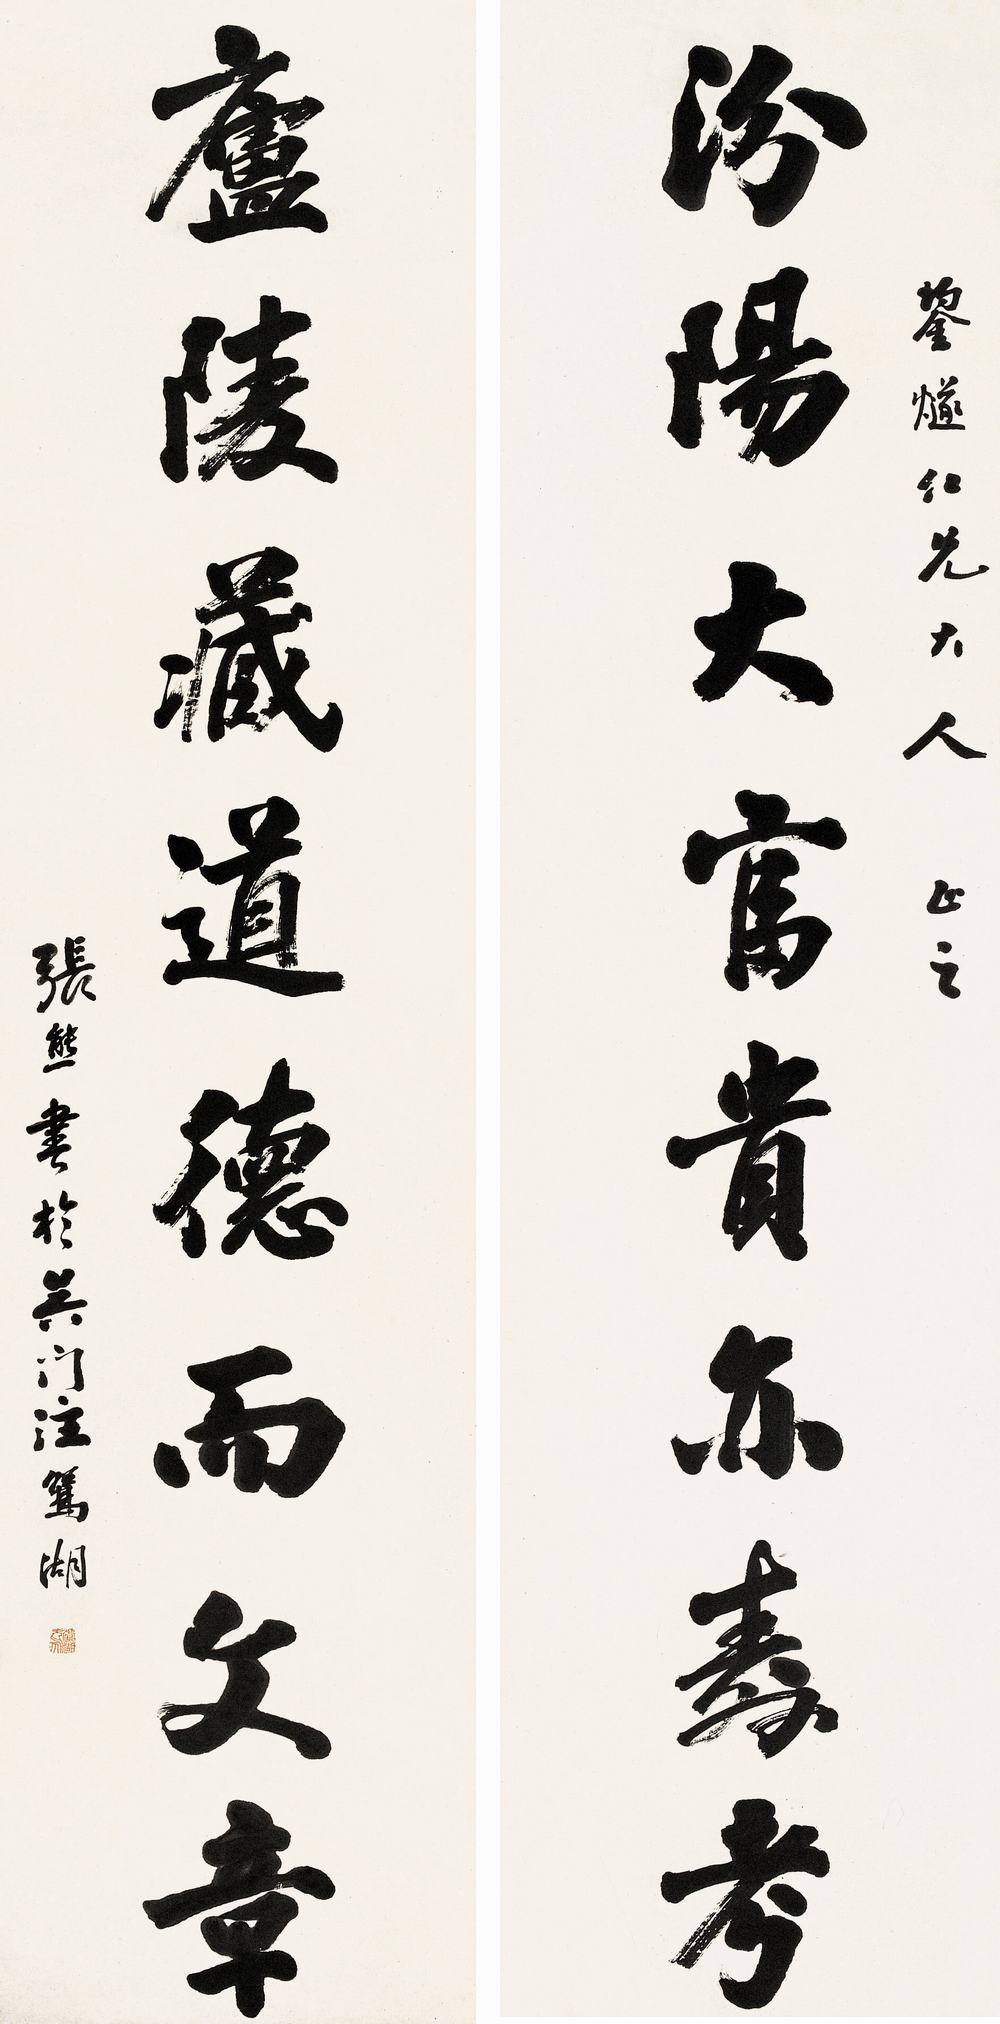 鋆燧仁兄大人正之
汾陽大富貴亦壽考
廬陵藏道德而文章
張熊書於吳門注鴛湖